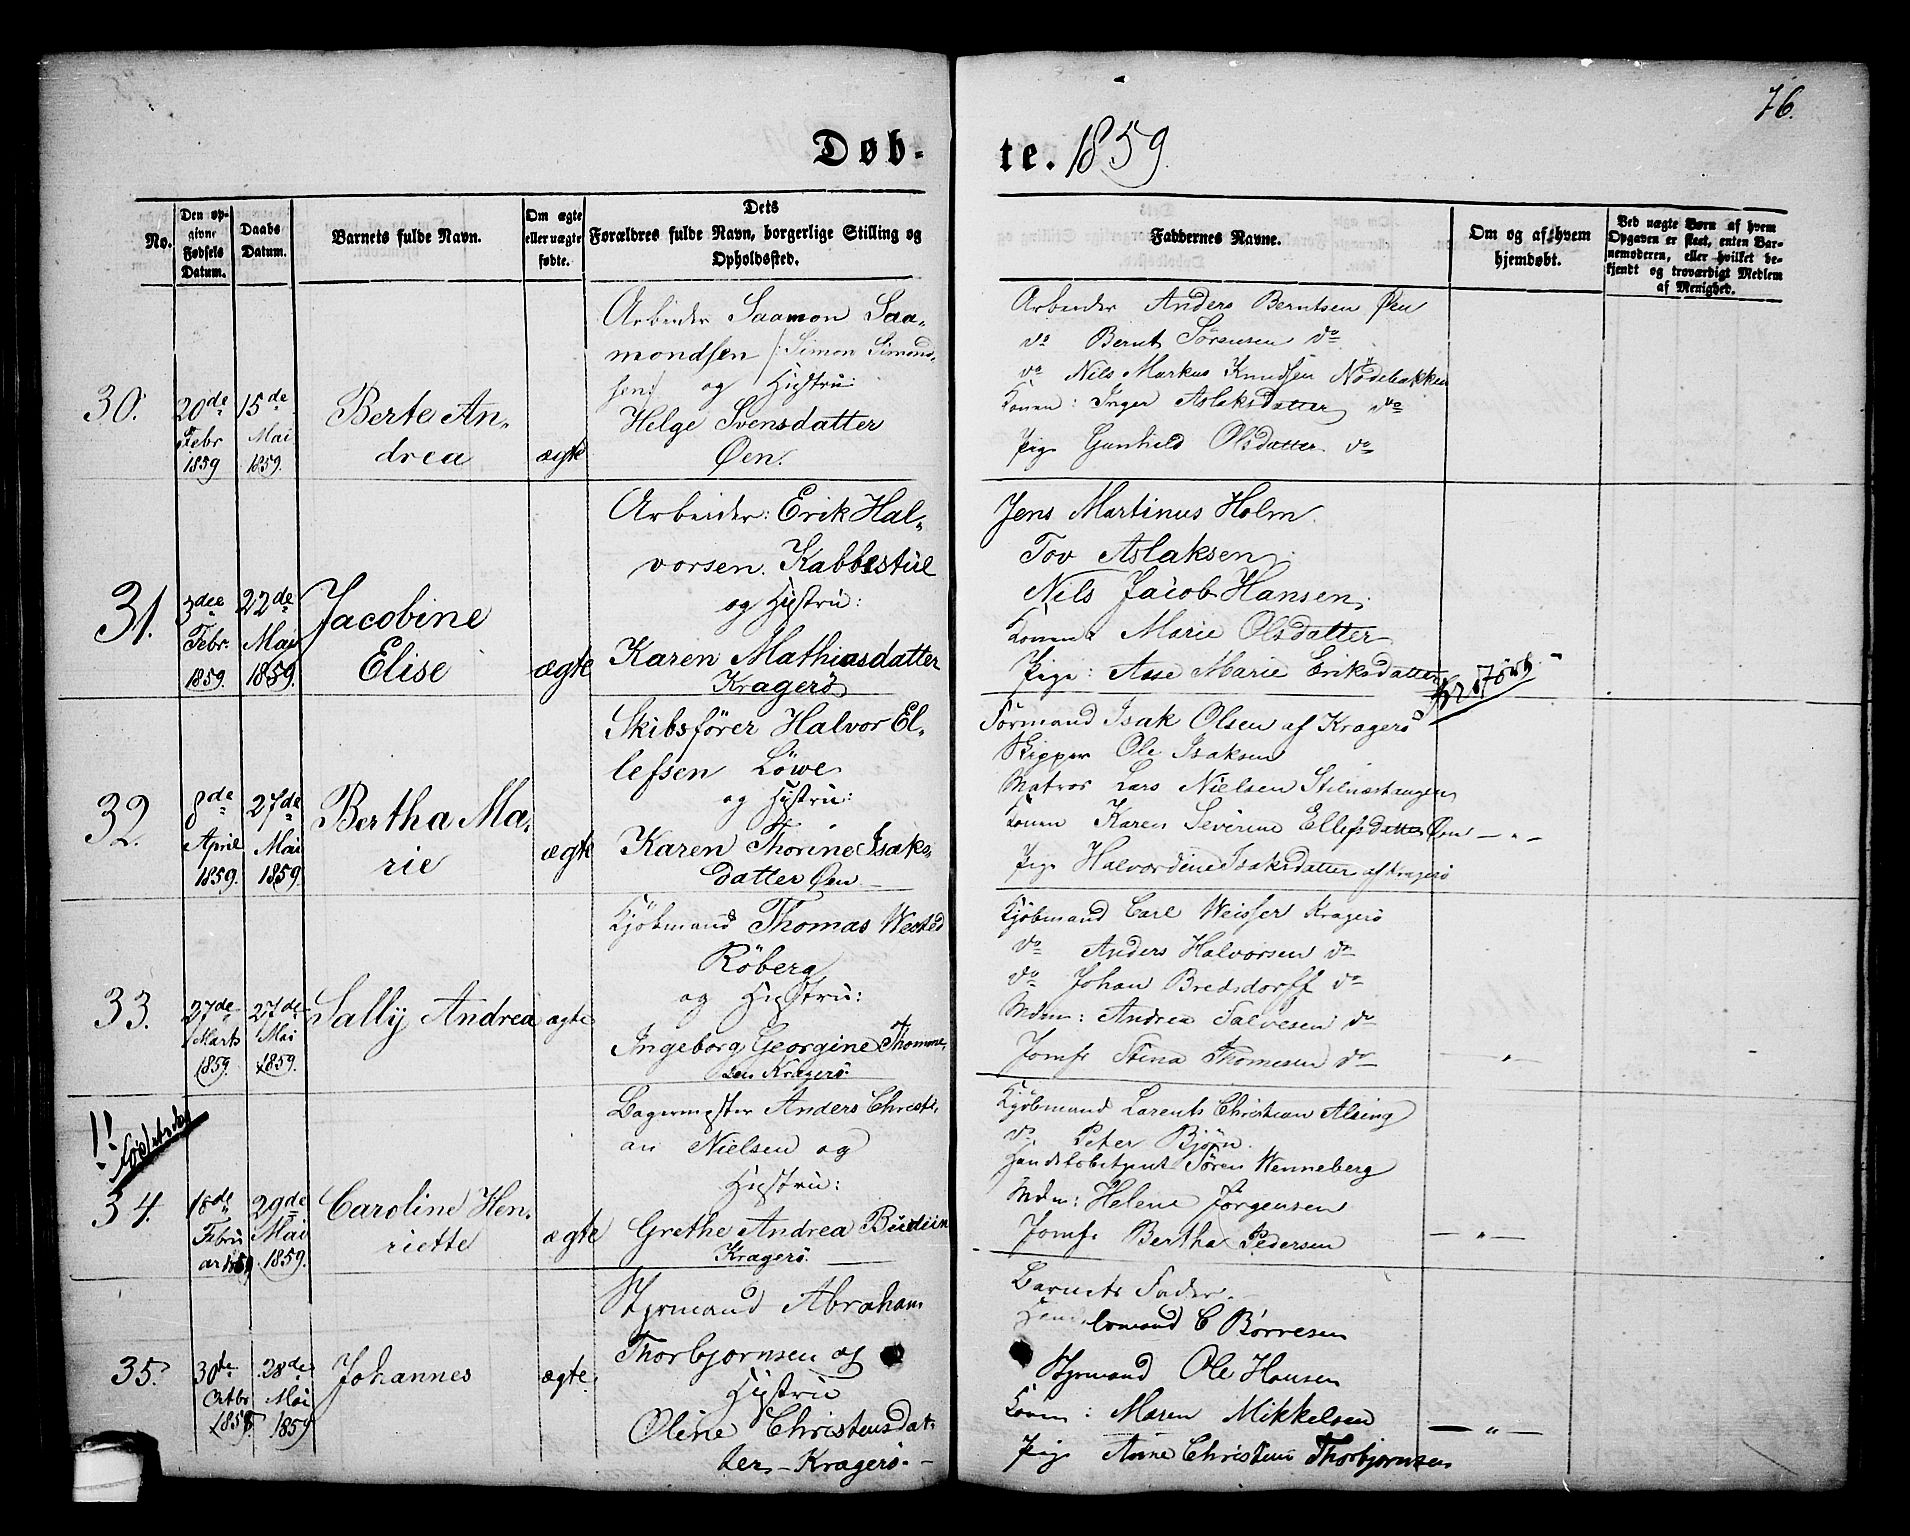 76.
Døb-
te. 1859.
No.
Den op-
givne
Fødsels
Datum.
Daabs
Datum.
Barnets fulde Navn.
Om ægte
eller uægte
fødte.
Dets
Forældres fulde Navn, borgerlige Stilling og
Opholdssted.
Faddernes Navne.
Om og af hvem
hjemdøbt.
Ved uægte Børn af hvem
Opgaven er skeet, enten Bar-
nemoderen, eller hvilket be-
kjendt og troværdigt Medlem
af Menighed.
30.
20de
Febr
1859
15de
Mai
1859.
Berte An-
drea
ægte
Arbeider Saamon Saa-
mondsen /: Simon Simond-
sen/ og Hustru
Helge Svensdatter
Øen.
Arbeider Anders Berntsen Øen
do Bernt Sörensen do
do Nils Markus Knudsen Nödebakken
Konen: Inger Aslaksdatter do
Pige Gunhild Olsdatter do
31.
3dee
Febr.
1859.
22de
Mai
1859.
Jacobine
Elise
ægte
Arbeider: Erik Hal-
vorsen. Kabbestül
og Hustru:
Karen Mathiasdatter
Kragerö
Jens Martinus Holm.
Tov Aslaksen
Nils Jacob Hansen
Konen: Marie Olsdatter
Pige: Aase Marie Eriksdatter
32.
8de
April
1859.
27de
Mai
1859.
Bertha Ma-
rie
ægte
Skibsförer Halvor El-
lefsen Löwe
og Hustru:
Karen Thorine Isaks-
datter Øen
Formand Isak Olsen af Kragerö
Skipper Ole Isaksen
Matros Lars Nielsen Stilnæstangen
Konen Karen Severine Ellefsdatter Øen — " —
Pige Halvordine Isaksdatter af Kragerö
33.
27de
Marts
1859.
27de
Mai
1859.
Sally Andrea
ægte
Kjöbmand Thomas Wested
Röberg
og Hustru:
Ingeborg Georgine Thomme-
sen Kragerö.
Kjöbmand Carl Weisser Kragerö
do Anders Halvorsen do
do Johan Bredsdorff do
Mdm: Andrea Salvesen do
Jomfr Stina Thomesen do — " —
!!
34.
18de
Febru
ar 1859.
29de
Mai
1859.
Caroline Hen-
riette
ægte
Bagermester Anders Christi-
an Nielsen og
Hustru:
Grethe Andrea
Kragerö.
Kjöbmand Larents Christian Alsing
do Peter Bjørn.
Søren Wenneberg
Mdm: Helene Jørgensen
Jomfr Bertha Pedersen — " —
35.
30te
1858
28de
Mai
1859
Johannes
ægte.
Styrmand Abraham
Thorbjornsen og
Hustru
Oline Christensdat-
ter, - Kragerö. -
Barnets Fader. -
C Börresen
Styrmand Ole Hansen
Konen: Maren Mikkelsen — " —
Pige Anne Christine Thorbjornsen